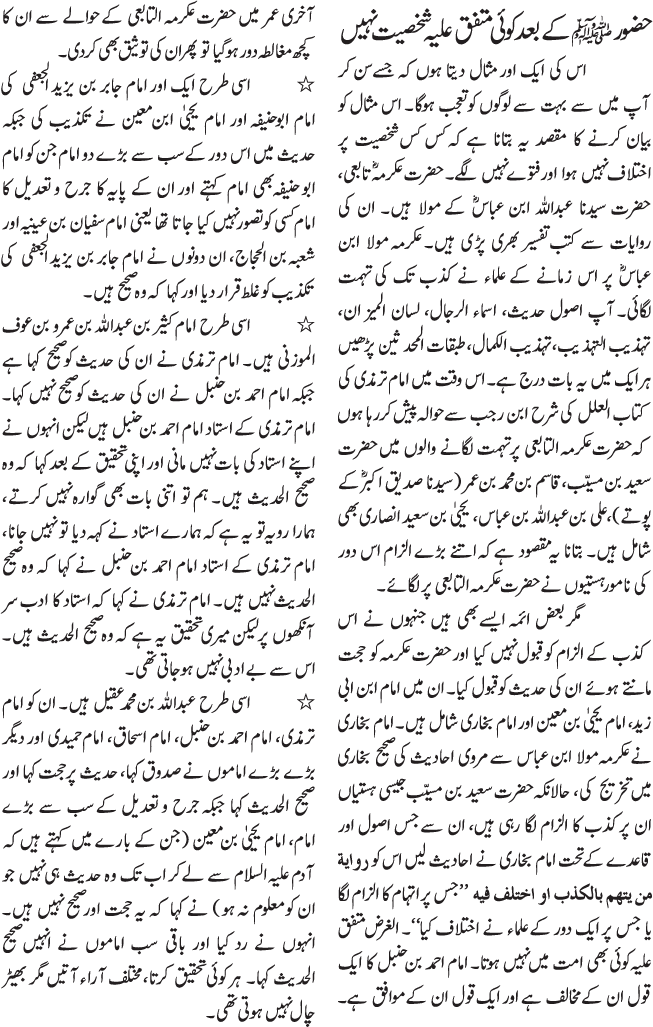 حضور ﷺ کے بعد کوئی متفق علیہ شخصیت نہیں
اس کی ایک اور مثال دیتا ہوں کہ جسے سن کر
آپ میں سے بہت سے لوگوں کو تعجب ہوگا۔ اس مثال کو
بیان کرنے کا مقصد یہ بتانا ہے کہ کس کس شخصیت پر
اختلاف نہیں ہوا اور فتوے نہیں لگے۔ حضرت عکرمہؓ تابعی،
حضرت سیدنا عبداللہ ابن عباسؓ کے مولا ہیں۔ ان کی
روایات سے کتب تفسیر بھری پڑی ہیں۔ عکرمہ مولا ابن
عباسؓ پر اس زمانے کے علماء نے کذب تک کی تہمت
لگائی۔ آپ اصول حدیث، اسماء الرجال، لسان المیزان،
تہذیب التہذیب، تہذیب الکمال، طبقات المحدثین پڑھیں
ہر ایک میں یہ بات درج ہے۔ اس وقت میں امام ترمذی کی
کتاب العلل کی شرح ابن رجب سے حوالہ پیش کر رہا ہوں
کہ حضرت عکرمہ التابعی پر تہمت لگانے والوں میں حضرت
سعید بن مسیّب، قاسم بن محمد بن عمر (سیدنا صدیق اکبرؓ کے
پوتے)، علی بن عبداللہ بن عباس، یحییٰ بن سعید انصاری بھی
شامل ہیں۔ بتانا یہ مقصود ہے کہ اتنے بڑے الزام اس دور
کی نامور ہستیوں نے حضرت عکرمہ التابعی پر لگائے۔
مگر بعض ائمہ ایسے بھی ہیں جنہوں نے اس
کذب کے الزام کو قبول نہیں کیا اور حضرت عکرمہ کو حجت
مانتے ہوئے ان کی حدیث کو قبول کیا۔ ان میں امام ابن ابی
زید، امام یحییٰ بن معین اور امام بخاری شامل ہیں۔ امام بخاری
نے عکرمہ مولا ابن عباس سے مروی احادیث کی صحیح بخاری
میں تخریج کی، حالانکہ حضرت سعید بن مسیّب جیسی ہستیاں
ان پر کذب کا الزام لگا رہی ہیں، ان سے جس اصول اور
قاعدے کے تحت امام بخاری نے احادیث لیں اس کو رواية
من يتهم بالكذب او اختلف فيه ”جس پر اتہام کا الزام لگا
یا جس پر ایک دور کے علماء نے اختلاف کیا“۔ الغرض متفق
علیہ کوئی بھی امت میں نہیں ہوتا۔ امام احمد بن حنبل کا ایک
قول ان کے مخالف ہے اور ایک قول ان کے موافق ہے۔
آخری عمر میں حضرت عکرمہ التابعی کے حوالے سے ان کا
کچھ مغالطہ دور ہوگیا تو پھر ان کی توثیق بھی کردی۔
☆ اسی طرح ایک اور امام جابر بن یزید الجعفی کی
امام ابوحنیفہ اور امام یحییٰ ابن معین نے تکذیب کی جبکہ
حدیث میں اس دور کے سب سے بڑے دو امام جن کو امام
ابوحنیفہ بھی امام کہتے اور ان کے پایہ کا جرح و تعدیل کا
امام کسی کو تصور نہیں کیا جاتا تھا یعنی امام سفیان بن عینیہ اور
شعبہ بن الحجاج، ان دونوں نے امام جابر بن یزید الجعفی کی
تکذیب کو غلط قرار دیا اور کہا کہ وہ صحیح ہیں۔
☆ اسی طرح امام کثیر بن عبداللہ بن عمرو بن عوف
الموزنی ہیں۔ امام ترمذی نے ان کی حدیث کو صحیح کہا ہے
جبکہ امام احمد بن حنبل نے ان کی حدیث کو صحیح نہیں کہا۔
امام ترمذی کے استاد امام احمد بن حنبل ہیں لیکن انہوں نے
اپنے استاد کی بات نہیں مانی اور اپنی تحقیق کے بعد کہا کہ وہ
صحیح الحدیث ہیں۔ ہم تو اتنی بات بھی گوارہ نہیں کرتے،
ہمارا رویہ تو یہ ہے کہ ہمارے استاد نے کہہ دیا تو نہیں جانا،
امام ترمذی کے استاد امام احمد بن حنبل نے کہا کہ وہ صحیح
الحدیث نہیں ہیں۔ امام ترمذی نے کہا کہ استاد کا ادب سر
آنکھوں پر لیکن میری تحقیق یہ ہے کہ وہ صحیح الحدیث ہیں۔
اس سے بے ادبی نہیں ہوجاتی تھی۔
☆ اسی طرح عبداللہ بن محمد عقیل ہیں۔ ان کو امام
ترمذی، امام احمد بن حنبل، امام اسحاق، امام حمیدی اور دیگر
بڑے بڑے اماموں نے صدوق کہا، حدیث پر حجت کہا اور
صحیح الحدیث کہا جبکہ جرح و تعدیل کے سب سے بڑے
امام، امام یحییٰ بن معین (جن کے بارے میں کہتے ہیں کہ
آدم علیہ السلام سے لے کر اب تک وہ حدیث ہی نہیں جو
ان کو معلوم نہ ہو) نے کہا کہ یہ حجت اور صحیح نہیں ہیں۔
انہوں نے رد کیا اور باقی سب اماموں نے انہیں صحیح
الحدیث کہا۔ ہر کوئی تحقیق کرتا، مختلف آراء آتیں مگر بھیڑ
چال نہیں ہوتی تھی۔